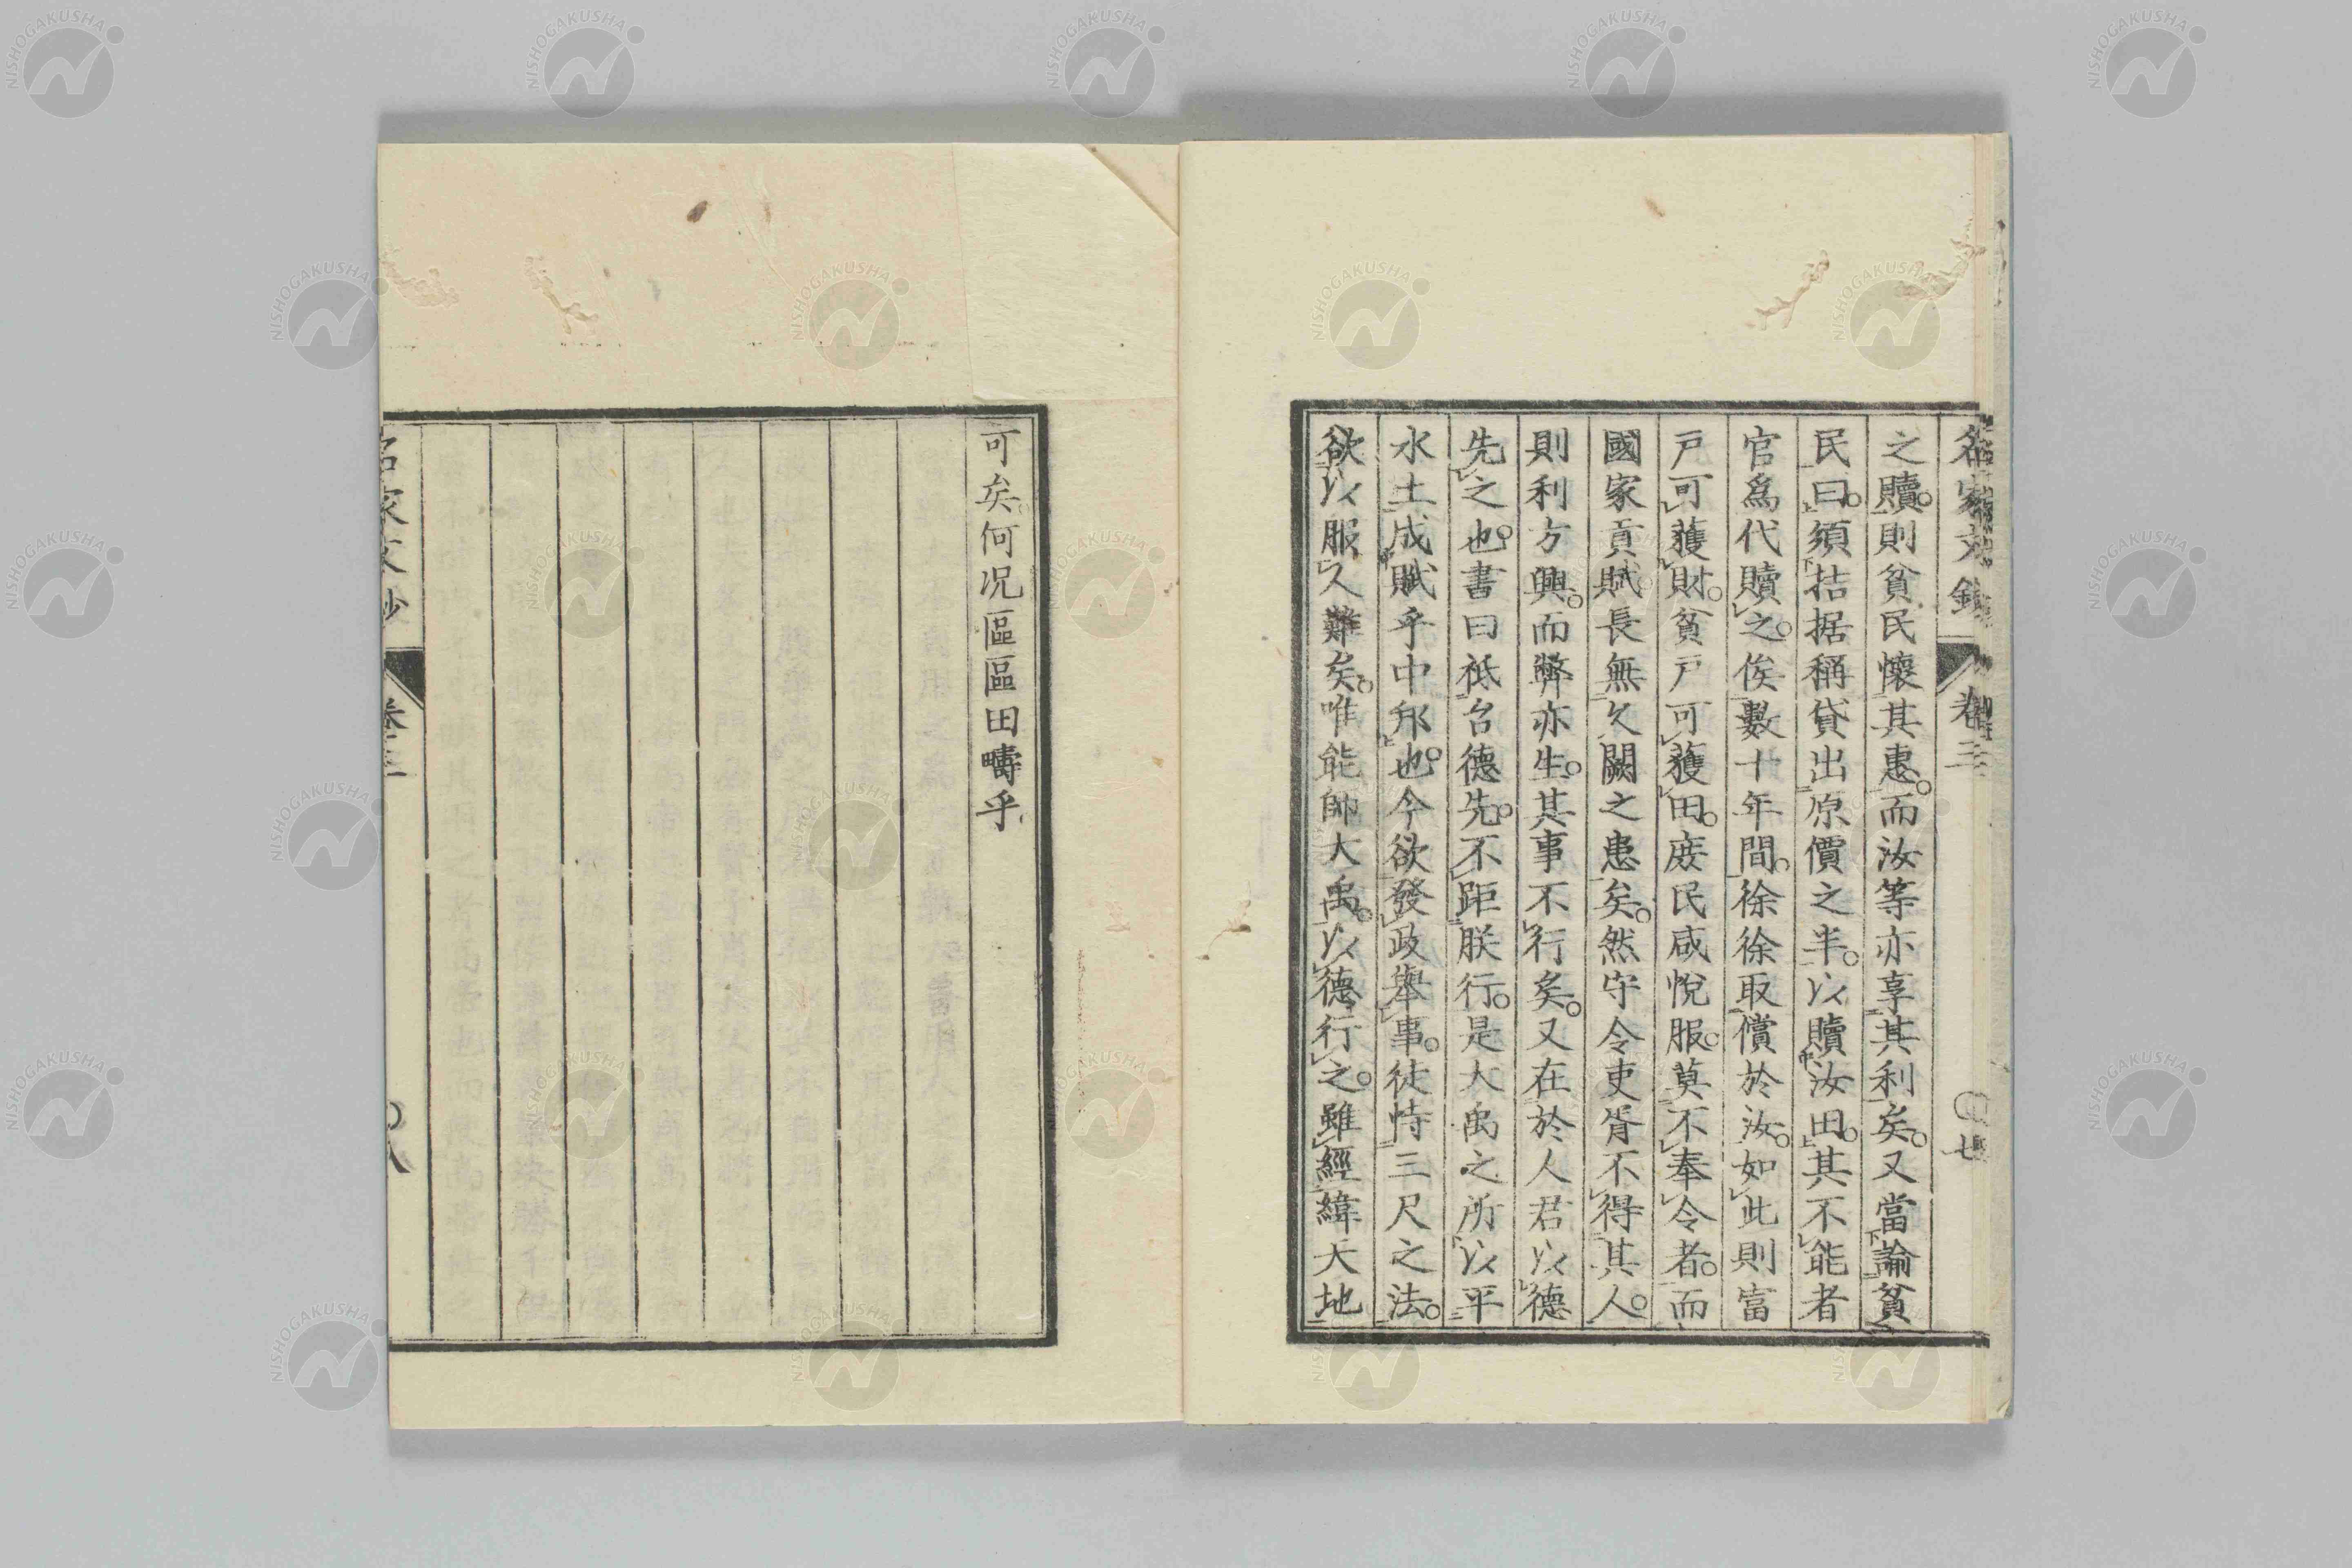 名家文鈔 卷三 〇七
之贖。則貧民懷其惠。而汝等亦享其利矣。又當諭貧
民曰。須拮据稱貸出原價之半。以贖汝田。其不能者
官爲代贖之。俟數十年間。徐徐取償於汝。如此則富
戸可獲財。貧戸可獲田。庶民咸悅服。莫不奉令者。而
國家貢賦長無欠闕之患矣。然守令吏胥不得其人。
則利方興。而弊亦生。其事不行矣。又在於人君以德
先之也。書曰祗台德先。不距朕行。是大禹之所以平
水土成賦乎中邦也。今欲發政舉事。徒恃三尺之法。
欲以服人難矣。唯能師大禹。以德行之。雖經緯天地
可矣。何況區區田疇乎
名家文鈔 卷三 〇八
NISHOGAKUSHA